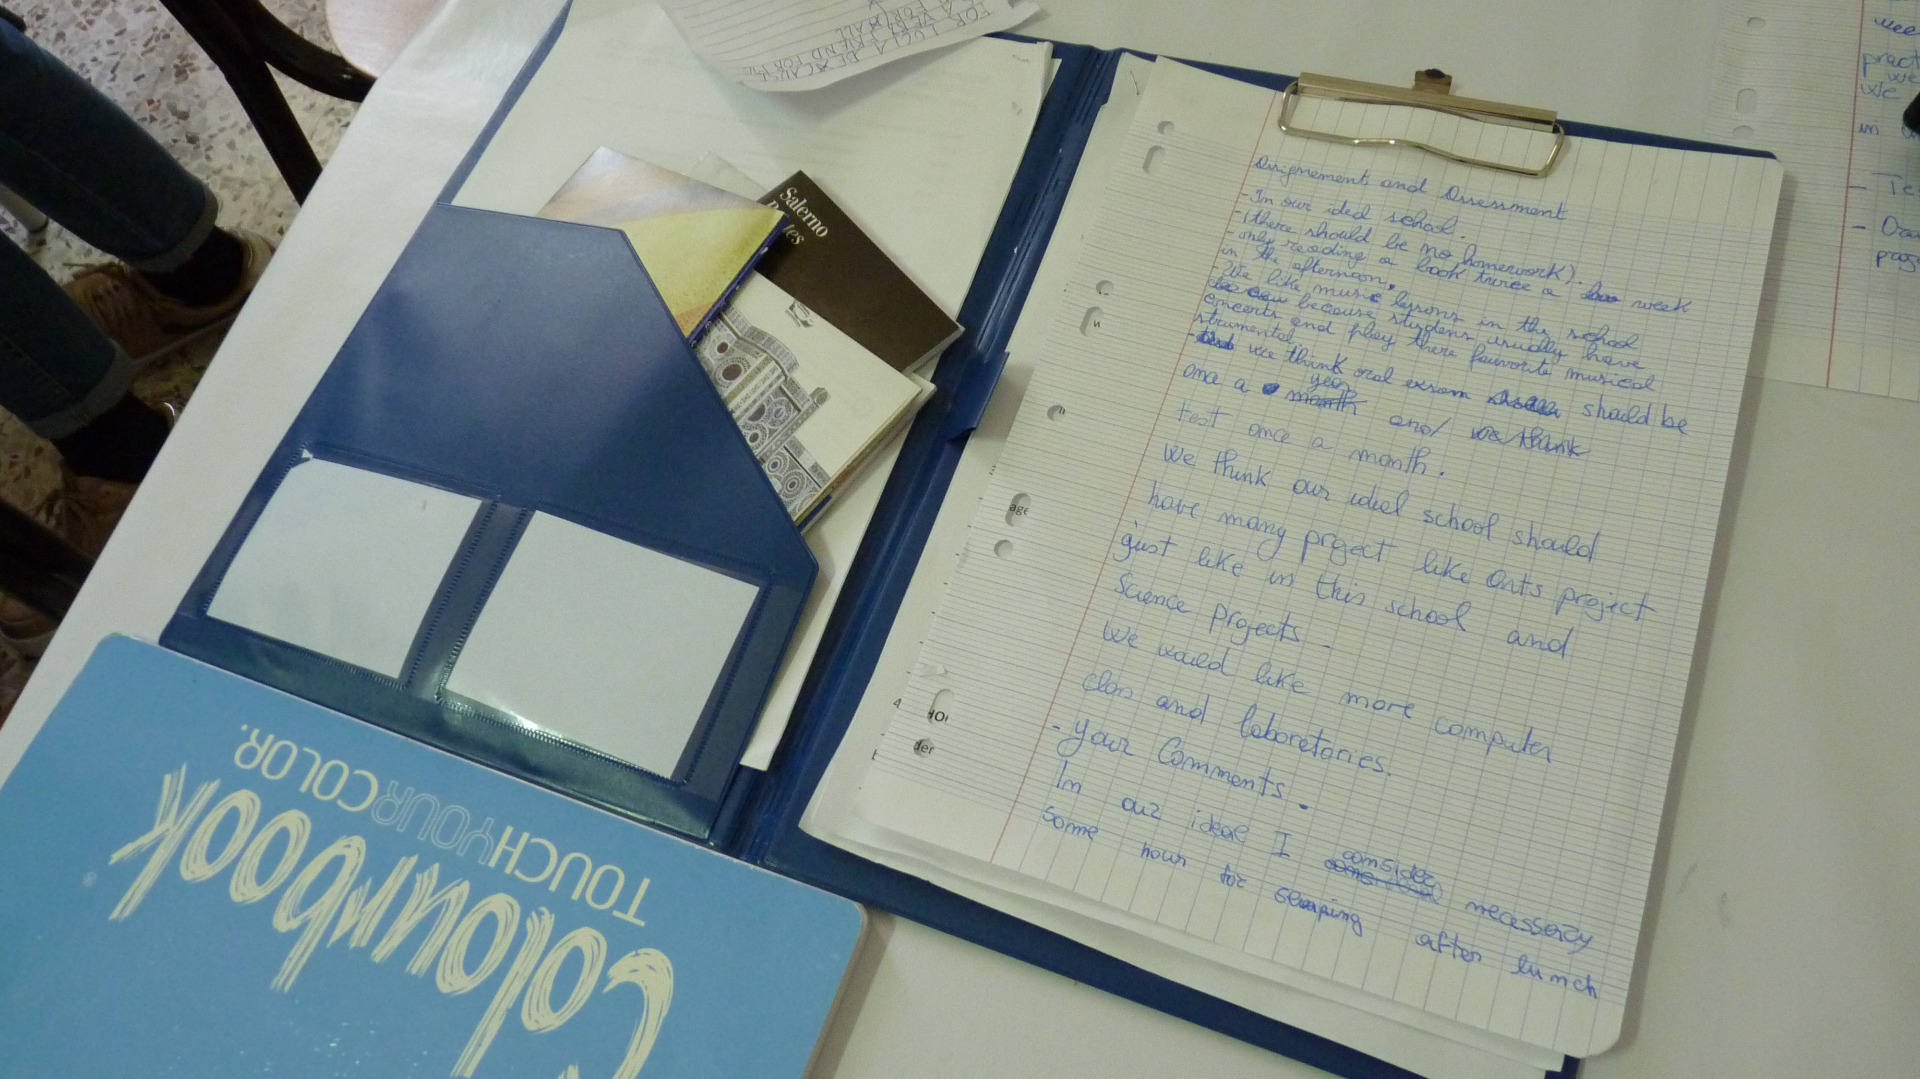 Assignements and Assessment
- In our ideal school.
- (there should be no homework).
- only reading a book twice a week
in the afternoon.
- We like music lessons in the school
because students usually have
concerts and play there favorite musical
strumental.
- we think oral exsam should be
once a year and
test once a month.
We think our ideal school should
have many project like arts project
just like in this school and
science projects.
We would like more computer
class and laboratories.
- your comments.
In our ideal I consider necessary
some hour for sleeping after lunch
Salerno
Colourbook
TOUCHYOURCOLOR.
practi
we
We
in
- Te
- Ora
age
HO
der
4